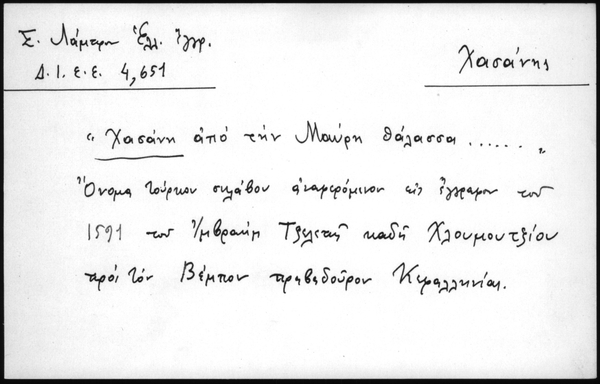 Σ. Λάμπρου Ἑλλ. ἔγγρ.
Δ.Ι.Ε.Ε. 4,651
Χασάνης
"Χασάνη ἀπό τήν Μαύρη θάλασσα ......"
Ὄνομα τούρκου σκλάβου ἀναφερόμενον εἰς ἔγγραφον τοῦ
1591 τοῦ Ἰμβραήμ Τζελεπῆ καδῆ Χλουμουτζίου
πρός τόν Βέμπον πρεβεδοῦρον Κεφαλληνίας.